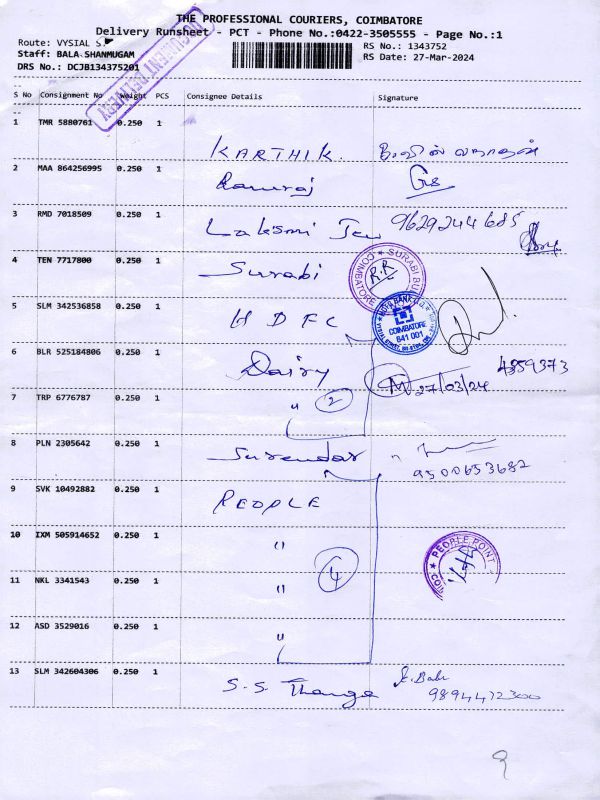 THE PROFESSIONAL COURIERS, COIMBATORE
Delivery Runsheet - PCT - Phone No.:0422-3505555 - Page No.:1
Route: VYSIAL S
RS No.: 1343752
Staff: BALA SHANMUGAM
RS Date: 27-Mar-2024
DRS No.: DCJB134375201
DOCUMENT DELIVERY
S No Consignment No Weight PCS Consignee Details Signature
1 TMR 5880761 0.250 1
KARTHIK.
2 MAA 864256995 0.250 1
Ramraj
3 RMD 7018509 0.250 1
Laksmi Jew 9629244685
4 TEN 7717800 0.250 1
Surabi
SURABI
COIMBATORE
R.R
5 SLM 342536858 0.250 1
HDFC
HDFC BANK LTD.
COIMBATORE
641 001
6 BLR 525184806 0.250 1
Dairy
27/03/24 4359373
7 TRP 6776787 0.250 1
" 2
8 PLN 2305642 0.250 1
Surendar 9500653682
9 SVK 10492882 0.250 1
PEOPLE
10 IXM 505914652 0.250 1
"
PEOPLE POINT
11 NKL 3341543 0.250 1
" 4
12 ASD 3529016 0.250 1
"
13 SLM 342604306 0.250 1
S.S. Thanga
Babu
9894472300
9